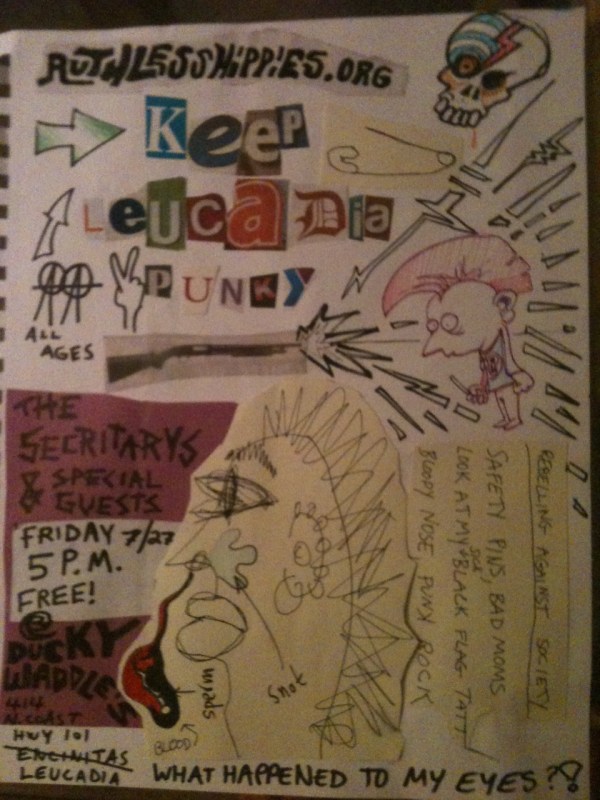 RUTHLESSHIPPIES.ORG
KeeP
LeUCaDia
PUNKY
ALL
AGES
THE
SECRITARYS
& SPECIAL
GUESTS
FRIDAY 7/27
5 P.M.
FREE!
@
DUCKY
WADDLE'S
414
N. COAST
HWY 101
ENCINITAS
LEUCADIA
REBELLING AGAINST SOCIETY
SAFETY PINS, BAD MOMS
LOOK AT MY SICK BLACK FLAG TATT
BLOODY NOSE, PUNK ROCK
snot
sperm
BLOOD
WHAT HAPPENED TO MY EYES?!?